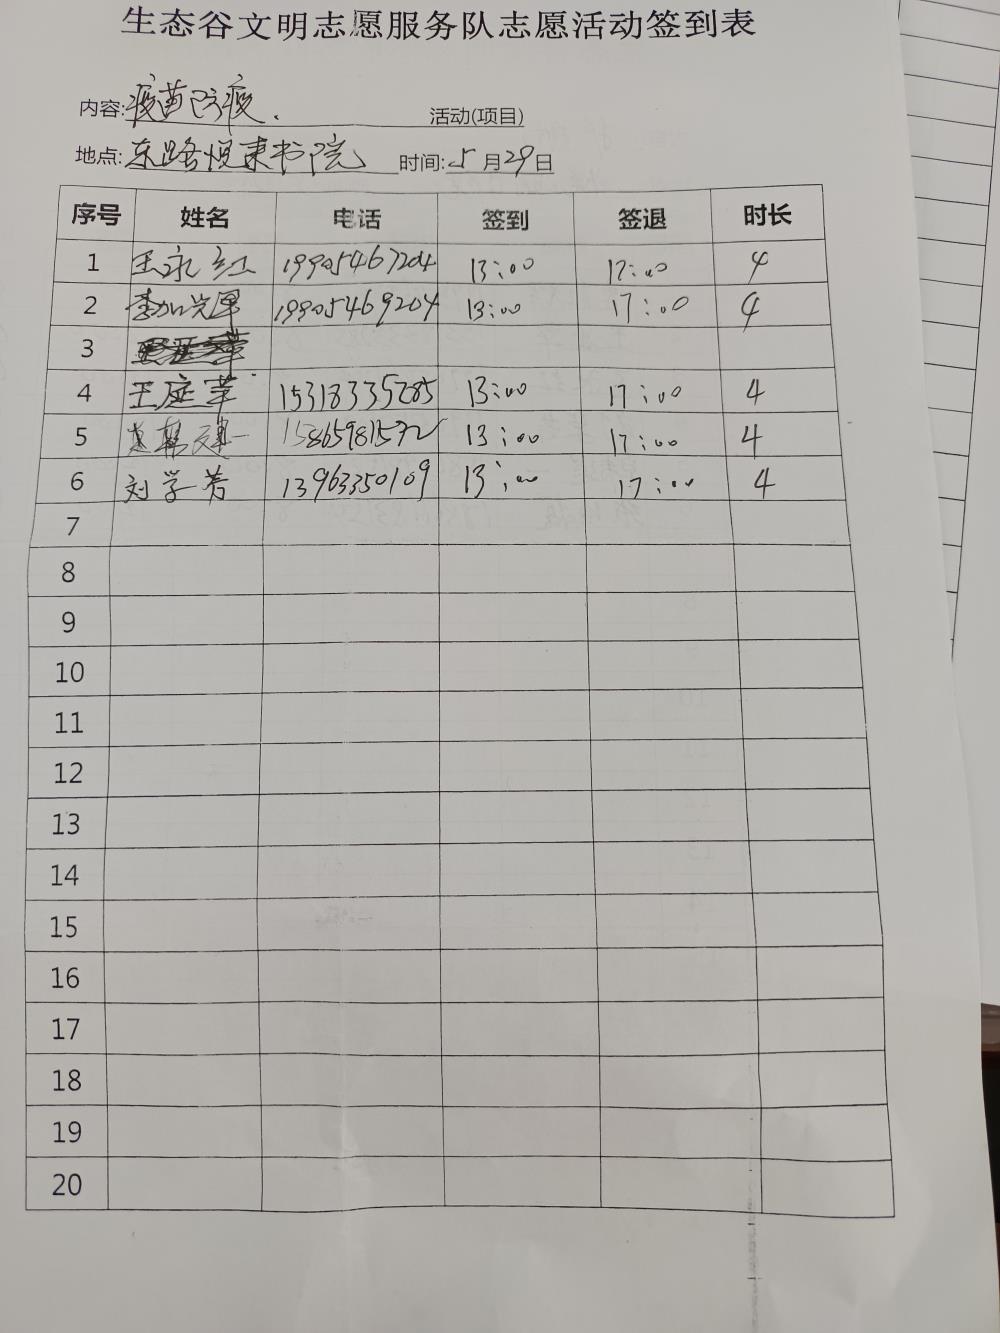 生态谷文明志愿服务队志愿活动签到表
内容:疫苗防疫. 活动(项目)
地点:东路悦来书院 时间:5月29日
序号 姓名 电话 签到 签退 时长
1 王永红 19905467204 13:00 17:00 4
2 李 19905469204 13:00 17:00 4
3
4 王庭苇 15318335285 13:00 17:00 4
5 15865981572 13:00 17:00 4
6 刘学芳 13963350109 13:00 17:00 4
7
8
9
10
11
12
13
14
15
16
17
18
19
20